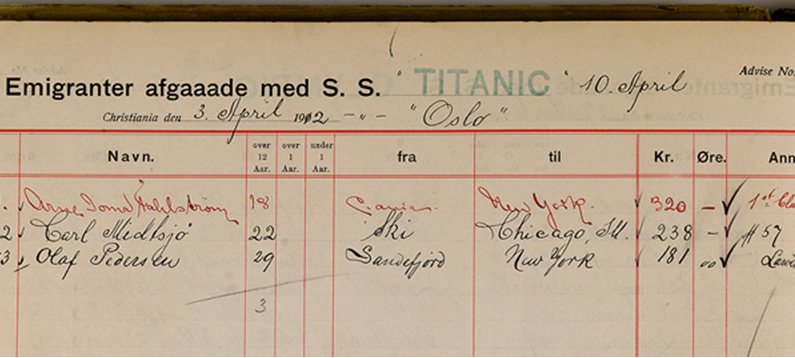 Advise No.
Emigranter afgaaade med S. S. "TITANIC" 10. April
Christiania den 3. April 1912 - „ - "Oslo"
Navn. over 12 Aar. over 1 Aar. under 1 Aar. fra til Kr. Øre. Ann
Arne Joma Fahlstrøm 18 C.ania. New York. 320 – 1st Cla
2 Carl Midtsjø 22 Ski Chicago, Ill. 238 – # 57
3 Olaf Pedersen 29 Sandefjord New York 181 00
3